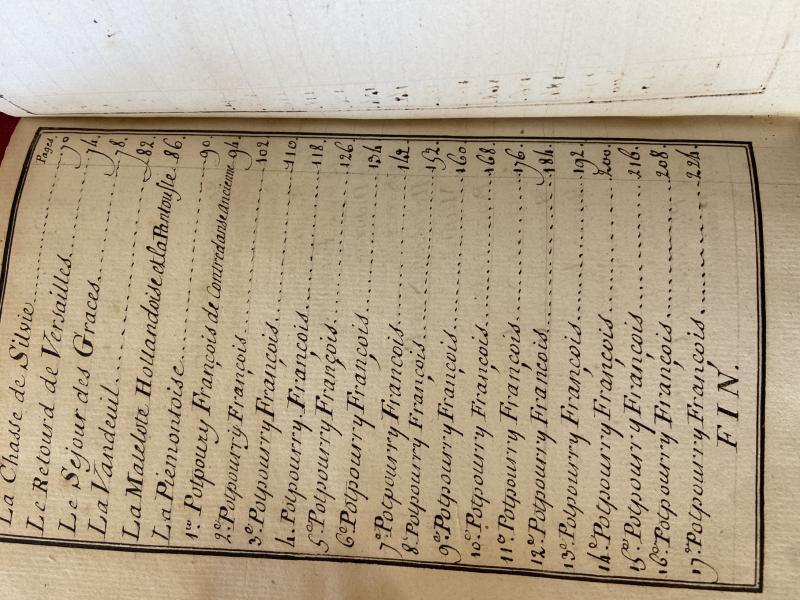 Pages.
La Chasse de Silvie 70
Le Retourd de Versailles 74.
Le Sejour des Graces 78.
La Vandeuil 82.
La Matelote Hollandoise et la Pantoufle 86.
La Piemontoise 90.
1er Potpoury François de Contredanse ancienne 94.
2e Potpourry François 102
3e Potpourry François 110.
4. Potpourry François 118.
5e Potpourry François 126
6e Potpourry François 134
7e Potpourry François 142
8e Potpourry François 152.
9e Potpourry François 160.
10e Potpourry François 168.
11e Potpourry François 176.
12e Potpourry François 184.
13e Potpourry François 192
14e Potpourry François 200.
15e Potpourry François 216.
16e Potpourry François 208.
17e Potpourry François 224.
FIN.